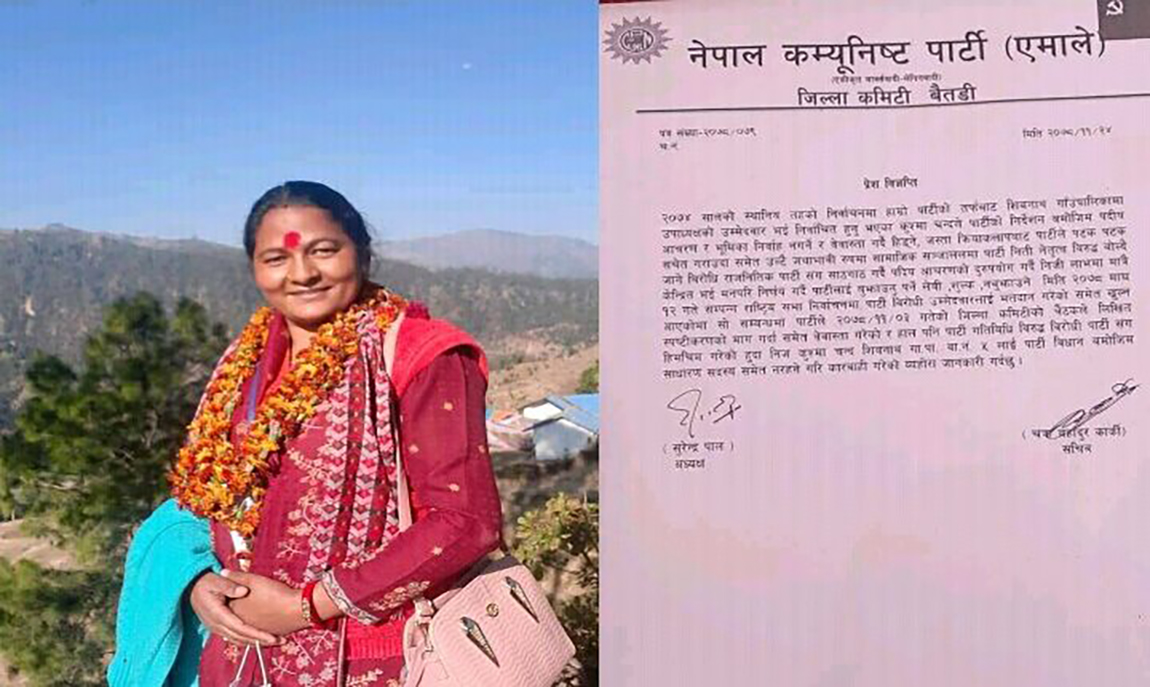 नेपाल कम्यूनिष्ट पार्टी (एमाले)
(एकीकृत मार्क्सवादी-लेनिनवादी)
जिल्ला कमिटी बैतडी
पत्र संख्या-२०७८/०७९
मिति २०७८/११/२४
च.नं
प्रेश विज्ञप्ति
२०७४ सालको स्थानिय तहको निर्वाचनमा हाम्रो पार्टीको तर्फबाट शिवनाथ गाँउपालिकामा
उपाध्यक्षको उम्मेदवार भई निर्वाचित हुनु भएका कुरमा चन्दले पार्टीको निर्देशन बमोजिम पदीय
आचरण र भूमिका निर्वाह नगर्ने र वेवास्ता गर्दै हिड्ने, जस्ता क्रियाकलापबाट पार्टीले पटक पटक
सचेत गराउदा समेत उल्टै जथाभाबी रुपमा सामाजिक सञ्जालमा पार्टी निती नेतृत्व विरुद्ध बोल्दै
जाने बिरोधि राजनितिक पार्टी संग साठगाठ गर्दै पदिय आचरणको दुरुपयोग गर्दै निजी लाभमा मात्रै
केन्द्रित भई मनपरि निर्णय गर्दै पार्टीलाई बुझाउनु पर्ने लेवी ,शुल्क ,नबुझाउने मिति २०७८ माघ
१२ गते सम्पन्न राष्ट्रिय सभा निर्वाचनमा पार्टी बिरोधी उम्मेदवारलाई मतदान गरेको समेत खुल्न
आएकोमा सो सम्बन्धमा पार्टीले २०७८/११/०३ गतेको जिल्ला कमिटीको बैठकले लिखित
स्पष्टीकरणको माग गर्दा समेत वेवास्ता गरेको र हाल पनि पार्टी गतिविधि विरुद्ध बिरोधी पार्टी संग
हिमचिम गरेको हुदा निज कुरमा चन्द शिवनाथ गा.पा. वा.नं. ५ लाई पार्टी विधान बमोजिम
साधारण सदस्य समेत नरहने गरि कारबाही गरेको व्यहोरा जानकारी गर्दछु ।
( सुरेन्द्र पाल )
अध्यक्ष
( चक्र बहादुर कार्की)
सचिव